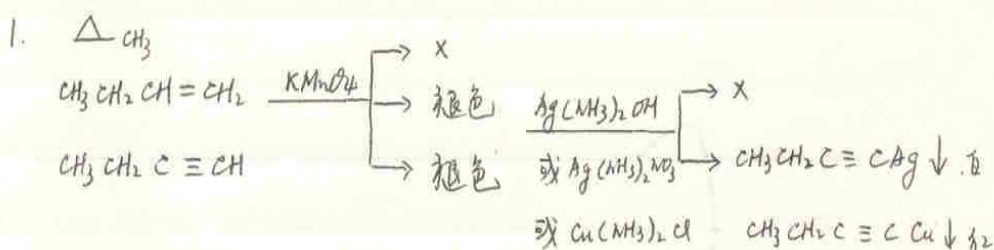 1. △CH₃ → ×
CH₃CH₂CH=CH₂ KMnO₄ → 褪色 Ag(NH₃)₂OH → ×
CH₃CH₂C≡CH → 褪色 或 Ag(NH₃)₂NO₃ → CH₃CH₂C≡CAg↓ 白
或 Cu(NH₃)₂Cl CH₃CH₂C≡CCu↓ 红